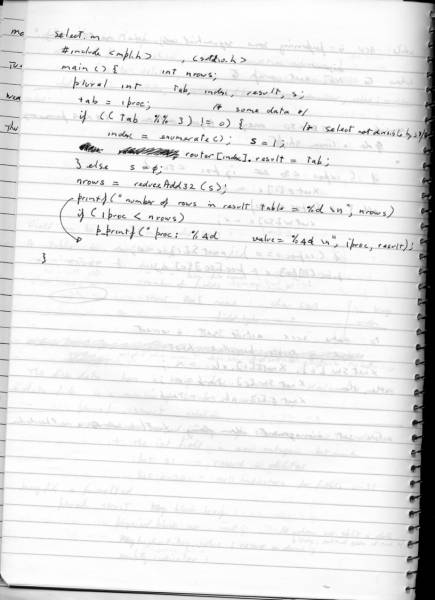 select.m
#include <mpl.h> , <stdio.h>
main () { int nrows;
plural int tab, index, result, s;
tab = iproc; /* some data */
if (( tab %% 3) != 0) { /* select not divisible by
index = enumerate(); s = 1;
router[index].result = tab;
} else s = 0;
nrows = reduceAdd32 (s);
printf (" number of rows in result table = %d \n", nrows)
if ( iproc < nrows)
p_printf (" proc: %4d value = %4d \n", iproc, result);
}